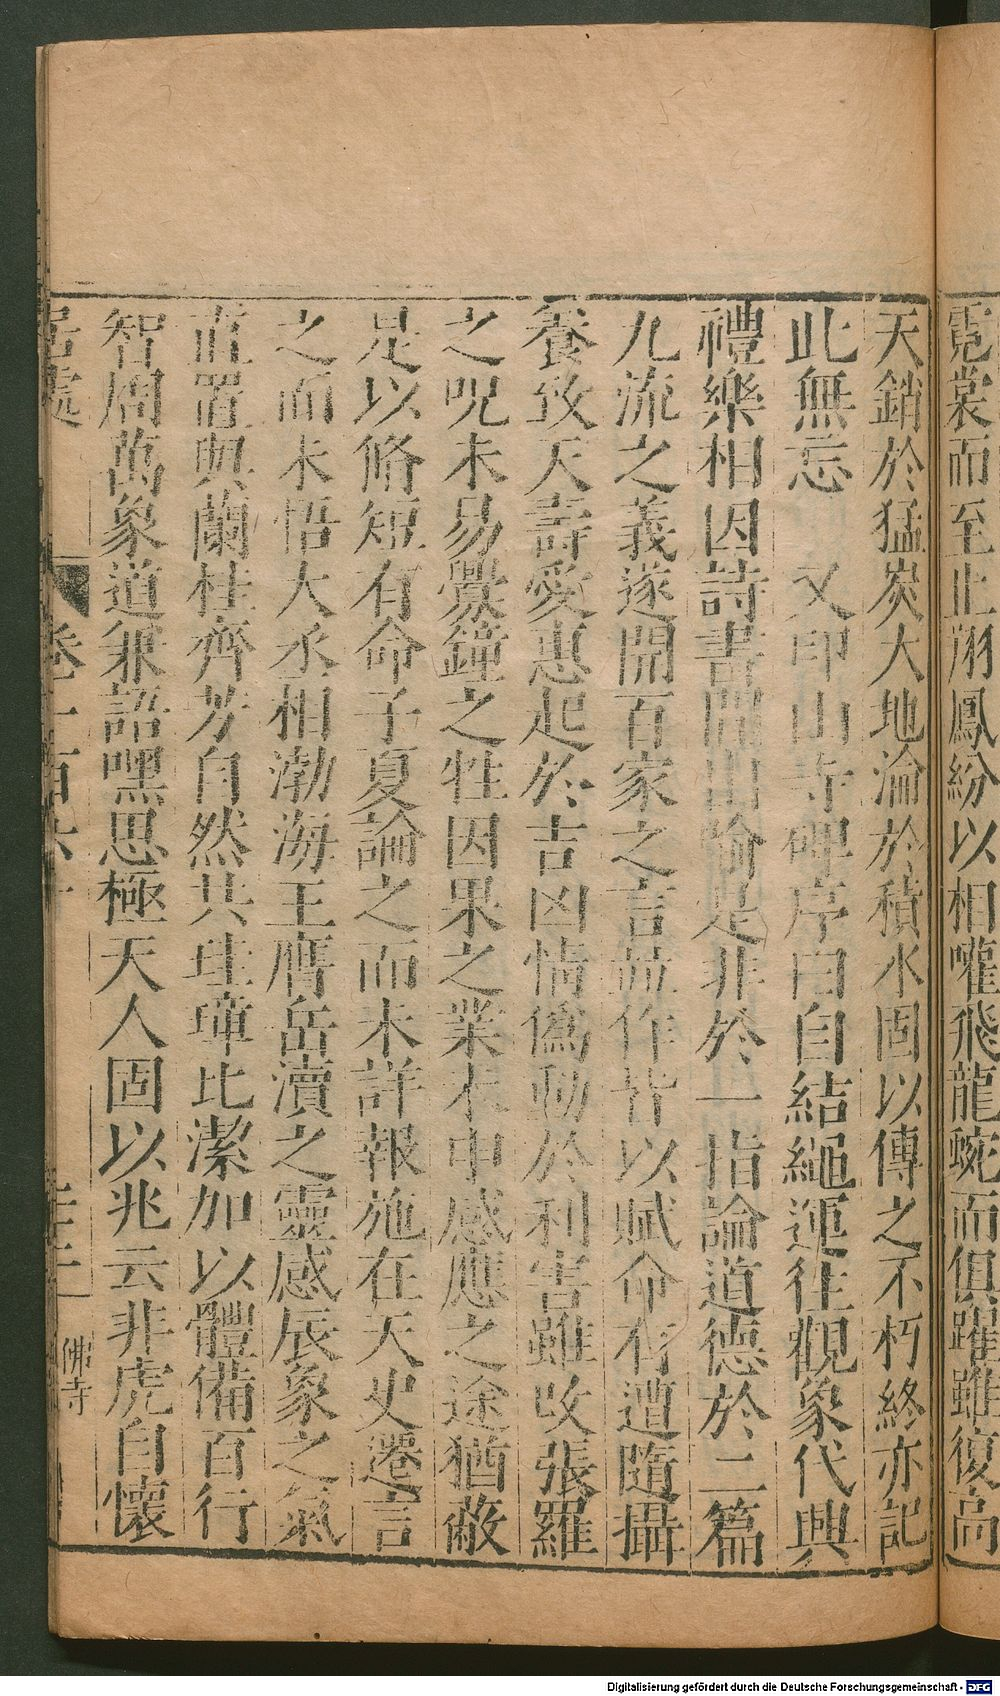 霓裳而至止翔鳳紛以相嚾飛龍蜿而俱躍雖復高
天銷於猛炭大地淪於積水固以傳之不朽終亦記
此無忘 又印山寺碑序曰自結繩運往觀象代興
禮樂相因詩書間出喻是非於一指論道德於二篇
九流之義遂開百家之言並作皆以賦命有遭隨攝
養致夭壽愛惠起於吉凶情僞動於利害雖改張羅
之呪未易釁鐘之牲因果之業未申感應之途猶蔽
是以脩短有命子夏論之而未詳報施在天史遷言
之而未悟大丞相渤海王膺岳瀆之靈感辰象之氣
直置與蘭桂齊芳自然共珪璋比潔加以體備百行
智周萬象道兼語嘿思極天人固以兆云非虎自懷
居處 卷一百六十 三十二 佛寺
Digitalisierung gefördert durch die Deutsche Forschungsgemeinschaft - DFG